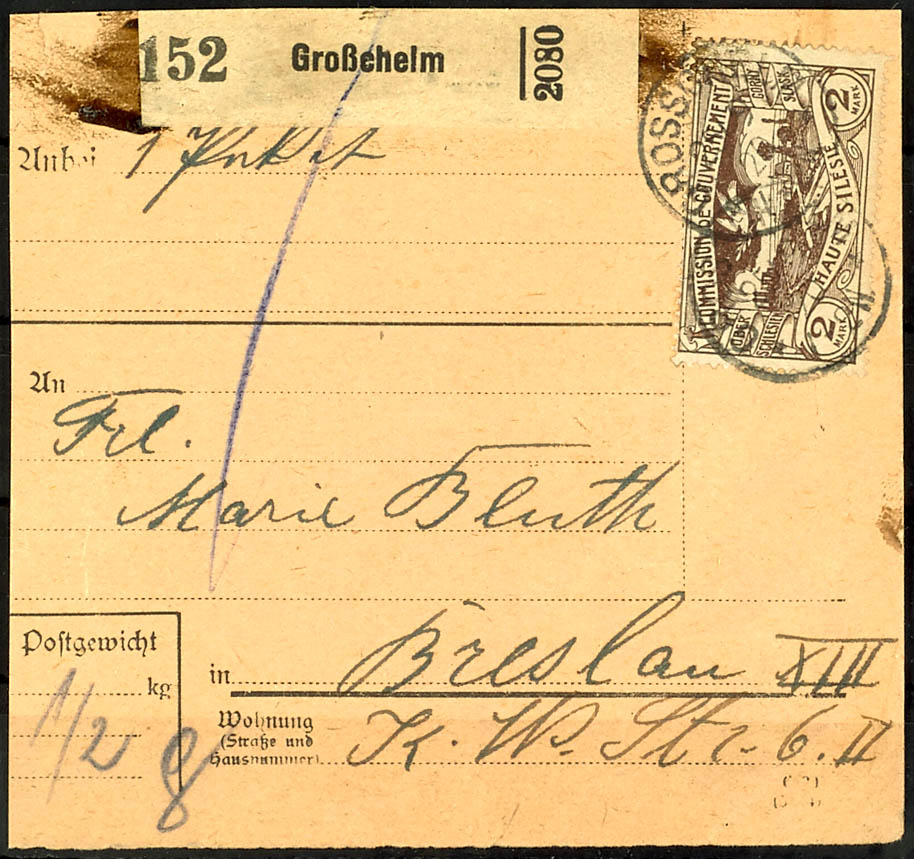 152 Großchelm 2080
Anbei 1 Paket
COMMISSION DE GOUVERNEMENT
HAUTE SILESIE
GORNY SLASK
OBER SCHLESIEN
2 MARK
2 MARK
GROSS
An
Frl.
Marie Bluth
Postgewicht
kg
1/2
8
in Breslau XIII
Wohnung
(Straße und
Hausnummer)
K. W. Str. 6. II